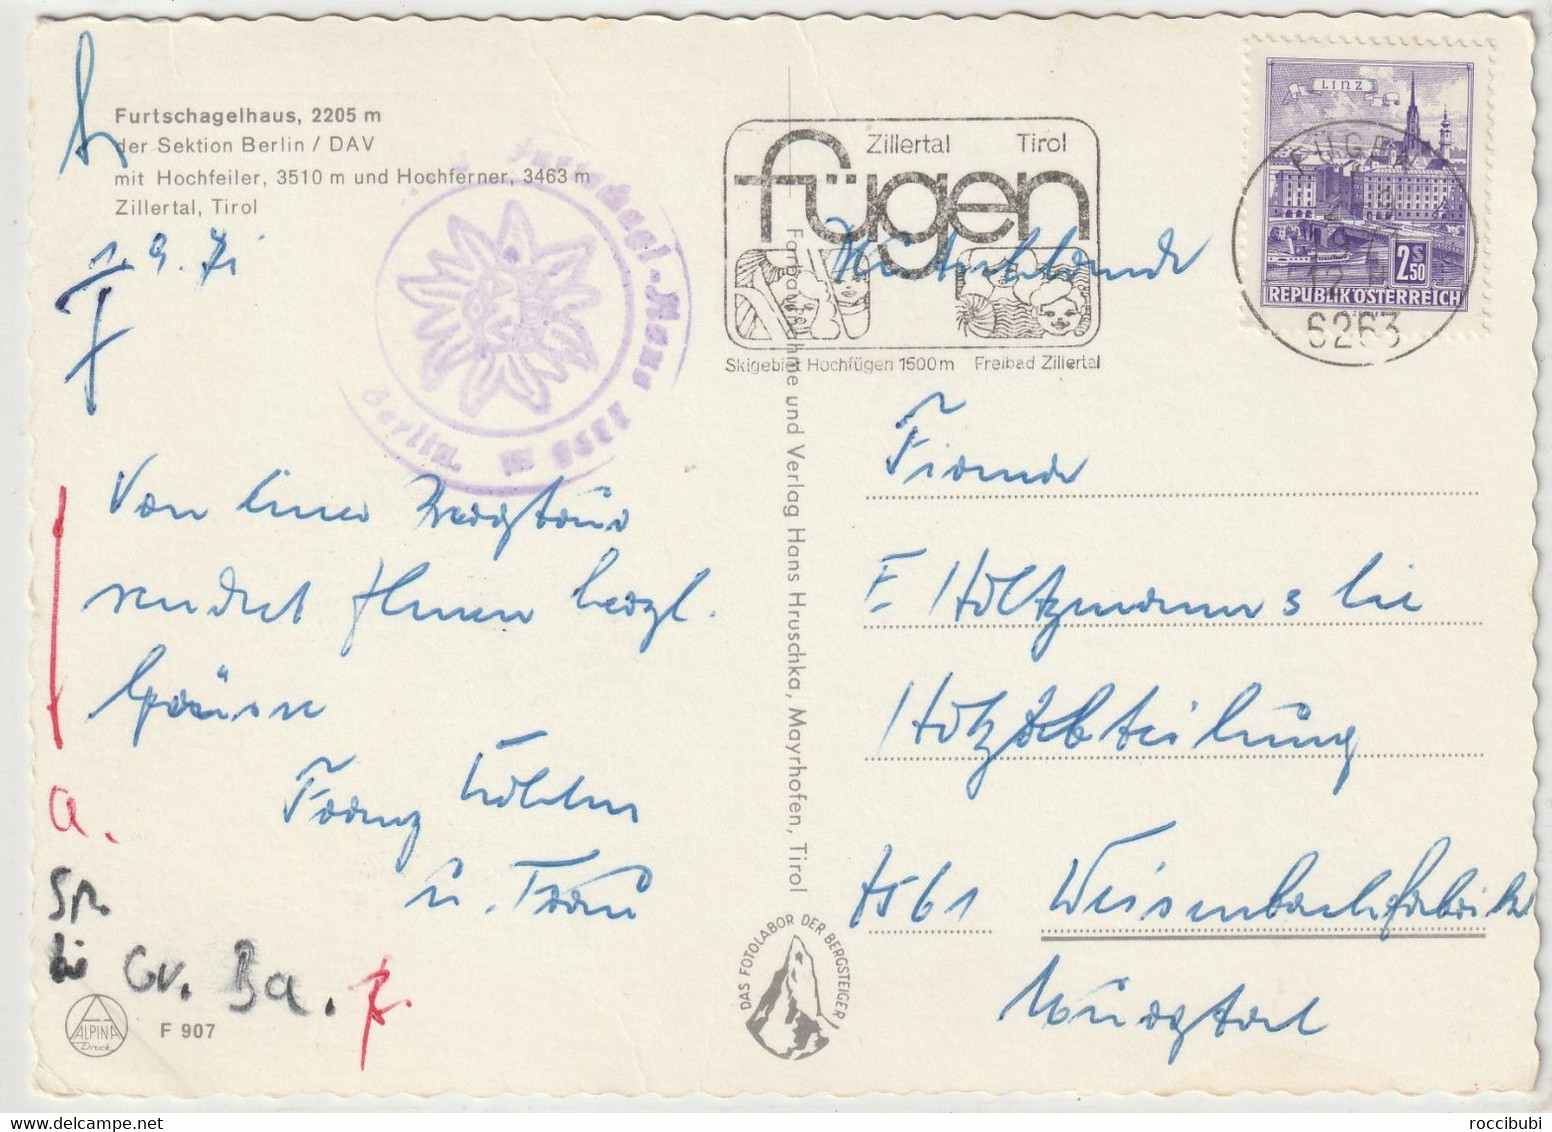 Furtschagelhaus, 2205 m
der Sektion Berlin / DAV
mit Hochfeiler, 3510 m und Hochferner, 3463 m
Zillertal, Tirol
1. 9. 71
Berlin. m 2295
Von einer Bergtour
sendet Ihnen herzl.
Grüsse
Franz
u. Frau
a.
Gr. Ba.
ALPINA
Druck
F 907
Farbaufnahme und Verlag Hans Hruschka, Mayrhofen, Tirol
DAS FOTOLABOR DER BERGSTEIGER
Zillertal Tirol
fügen
Skigebiet Hochfügen 1500m Freibad Zillertal
LINZ
2.50 S
REPUBLIK ÖSTERREICH
FÜGEN
6263
Deutschland
Firma
E. Holtzmann & Cie
Holzabteilung
7561 Weisenbachfabrik
Murgtal
roccibubi